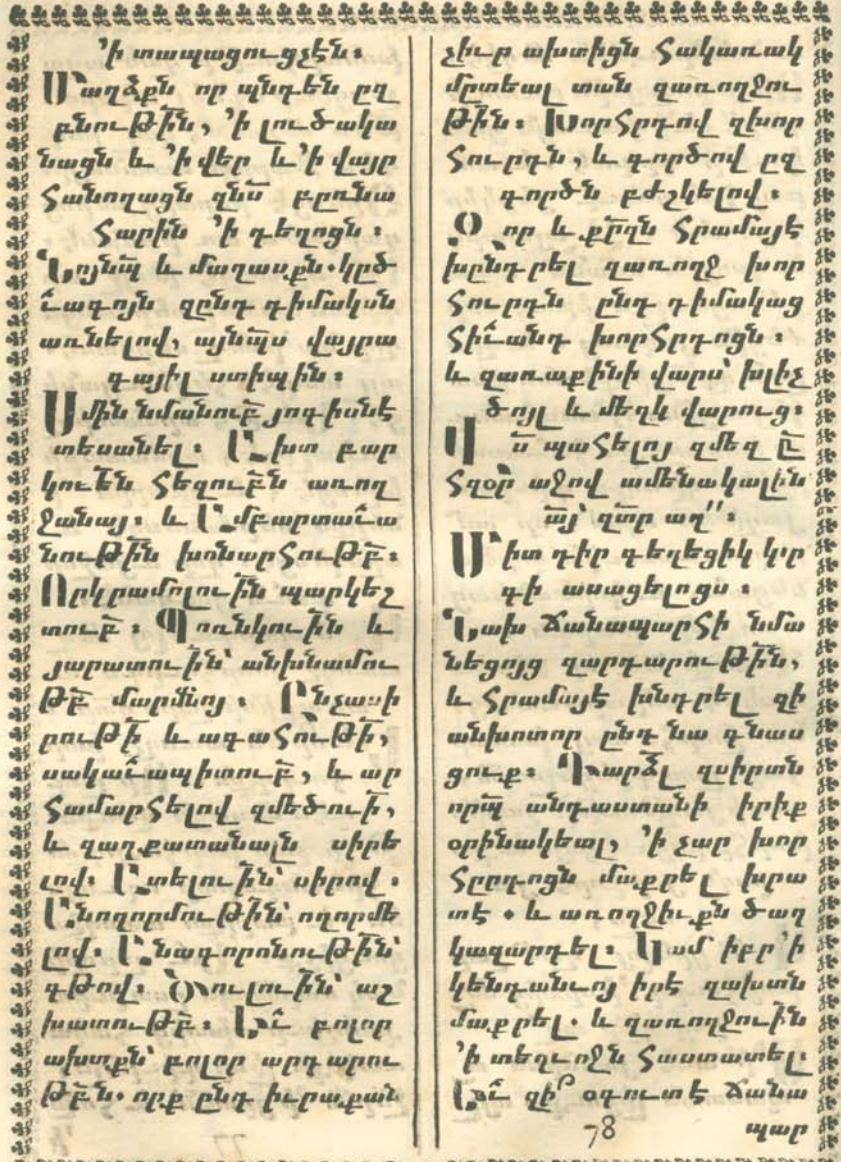 ՚ի տապացուցչէն։
Մաղձքն որ պնդեն ըզ
բնութի̄ն, ՚ի լուծակա
նացն և ՚ի վեր և ՚ի վայր
հանողացն զնս̄ բըռնա
հարին ՚ի դեղոցն։
Նոյնպ̄ և մաղասքն. կըծ
ւ̄ագոյն զընդդիմակսն
առնելով, այնպ̄ս վայրա
գայիլ ստիպին։
Ամին նմանուբ̄ յոգիսնէ
տեսանել։ Ախտ բար
կուե̄ն հեզուբ̄ն առող
ջանայ։ և Ամբարտաւ̄ա
նութի̄ն խոնարհութբ̄։
Որկրամոլուի̄ն պարկեշ
տուբ̄։ Պոռնկուի̄ն և
յարատուի̄ն՝ անխնամու
թբ̄ մարմ̄նոյ։ Ընչասի
րութի̄ և ագահու̄թի̄,
սակաւ̄ապիտուբ̄, և ար
համարհելով զմեծուի̄,
և զաղքատանալն սիրե
լով։ Ատելուի̄ն՝ սիրով։
Անողորմութի̄ն՝ ողորմե
լով։ Անագորոնութի̄ն՝
գթով։ Ծուլուի̄ն՝ աշ
խատութբ̄։ Եւ̄ բոլոր
ախտքն՝ բոլոր արդարու
թբ̄ն. որք ընդ իւրաքան
չիւր ախտիցն հակառակ
մըտեալ տան զառողջու
թի̄ն։ Խորհրդով զխոր
հուրդն, և գործով ըզ
գործն բժշկելով։
Զ որ և քր̄զն հրամայէ
խընդրել զառողջ խոր
հուրդն ընդդիմակաց
հիւ̄անդ խորհրդոցն։
և զառաքինի վարս՝ խլիչ
ծոյլ և մեղկ վարուց։
Վս̄ պահելոյ զմեզ ը̄
հզօր̄ աջով ամենակալին
այ̄՝ զտ̄ր աղ՛՛։
Միտ դիր գեղեցիկ կր
գի ասացելոցս։
Նախ ճանապարհի նմա
նեցոյց զարդարութի̄ն,
և հրամայէ խնդրել զի
անխոտոր ընդ նա գնաս
ցուք։ Դարձ̄լ զսիրտն
որպ̄ անդաստանի իրիք
օրինակեալ, ՚ի չար խոր
հըրդոցն մաքրել խրա
տէ. և առողջիւքն ծաղ
կազարդել։ Կամ՝ իբր ՚ի
կենդանւոյ իրէ զախտն
մաքրել. և զառողջուի̄ն
՚ի տեղւոջն հաստատել։
Եւ̄ զի՞ օգուտ է ճանա
78 պար